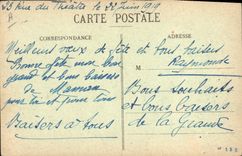 53 Rue du Théâtre le 22 Juin 1919
CARTE POSTALE
CORRESPONDANCE
ADRESSE
Meilleurs vœux de fête et bons baisers
Raymonde
Bonne fête mon
grand et bons baisers
de Maman
pour toi et pour tous
Baisers à tous
M
Bons Souhaits
et bons baisers
de la Grande